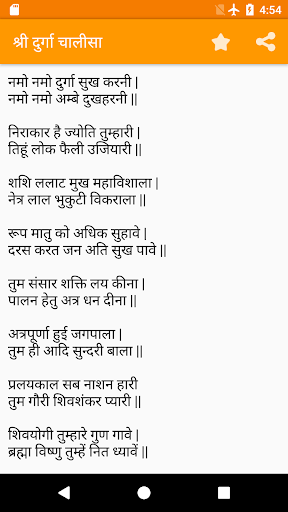 4:54
श्री दुर्गा चालीसा
नमो नमो दुर्गा सुख करनी |
नमो नमो अम्बे दुखहरनी ||
निराकार है ज्योति तुम्हारी |
तिहूं लोक फैली उजियारी ||
शशि ललाट मुख महाविशाला |
नेत्र लाल भुकुटी विकराला ||
रूप मातु को अधिक सुहावे |
दरस करत जन अति सुख पावे ||
तुम संसार शक्ति लय कीना |
पालन हेतु अत्र धन दीना ||
अत्रपूर्णा हुई जगपाला |
तुम ही आदि सुन्दरी बाला ||
प्रलयकाल सब नाशन हारी
तुम गौरी शिवशंकर प्यारी ||
शिवयोगी तुम्हारे गुण गावे |
ब्रह्मा विष्णु तुम्हें नित ध्यावें ||